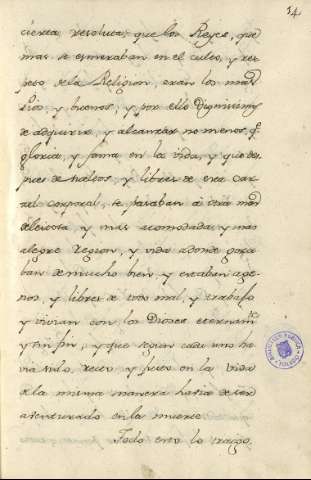 14
cierta, resoluta, que los Reyes, que
mas se esmeraban en el culto, y res-
peto de la Religion, eran los mas
pios, y buenos, y por ello Dignisimos
de adquirir, y alcanzar no menos q.e
gloria, y fama en la vida, y que des-
pues de muertos, y libres de esta car-
cel corporal, se pasaban á otra mas
deleitosa, y mas acomodada, y mas
alegre region, y vida adonde goza
ban de mucho bien y estaban age-
nos, y libres de todo mal, y trabajo
y vivian con los Dioses eternam.te
y sin fin, y que segun cada uno ha
via sido recto y justo en la vida
á la misma manera havia de ser
aventurado en la muerte.
Todo esto lo traigo